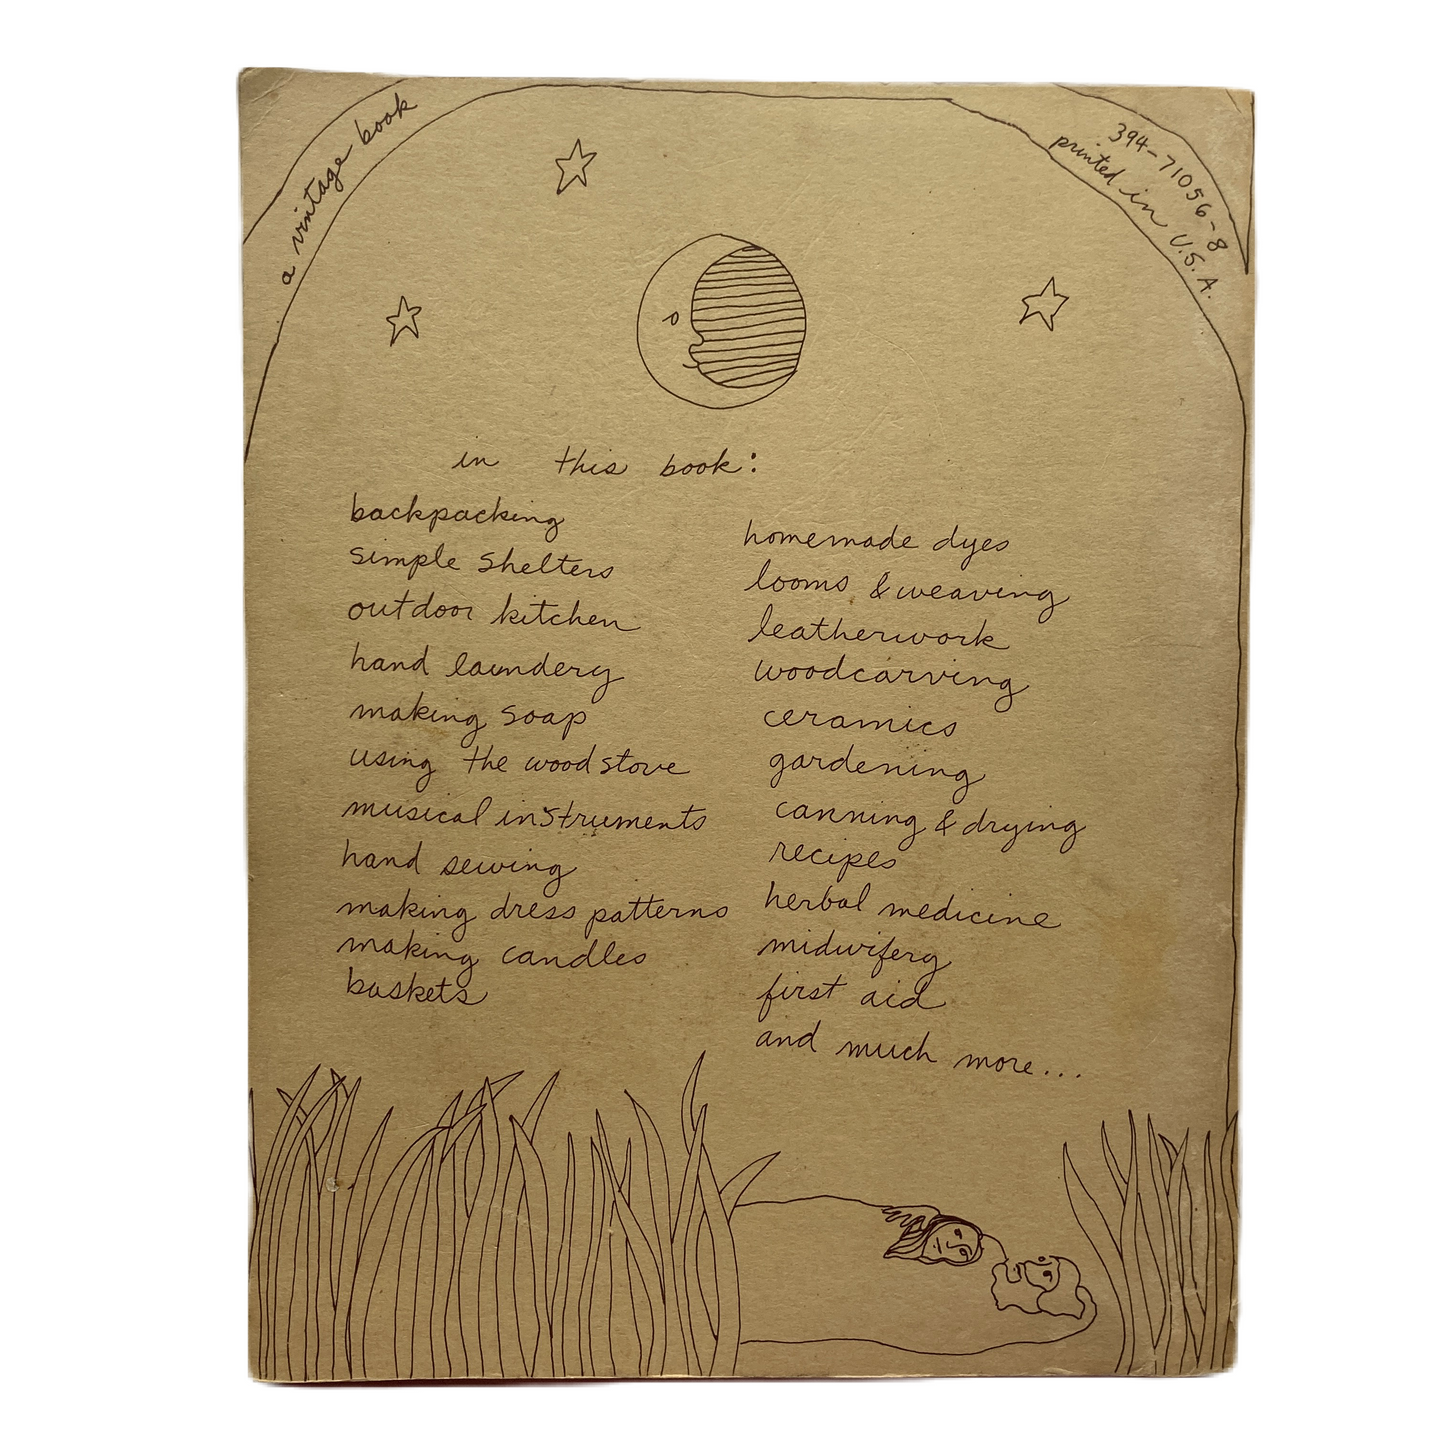 a vintage book
394-71056-8
printed in U.S.A.
in this book:
backpacking
simple shelters
outdoor kitchen
hand laundery
making soap
using the wood stove
musical instruments
hand sewing
making dress patterns
making candles
baskets
homemade dyes
looms & weaving
leatherwork
woodcarving
ceramics
gardening
canning & drying
recipes
herbal medicine
midwifery
first aid
and much more...